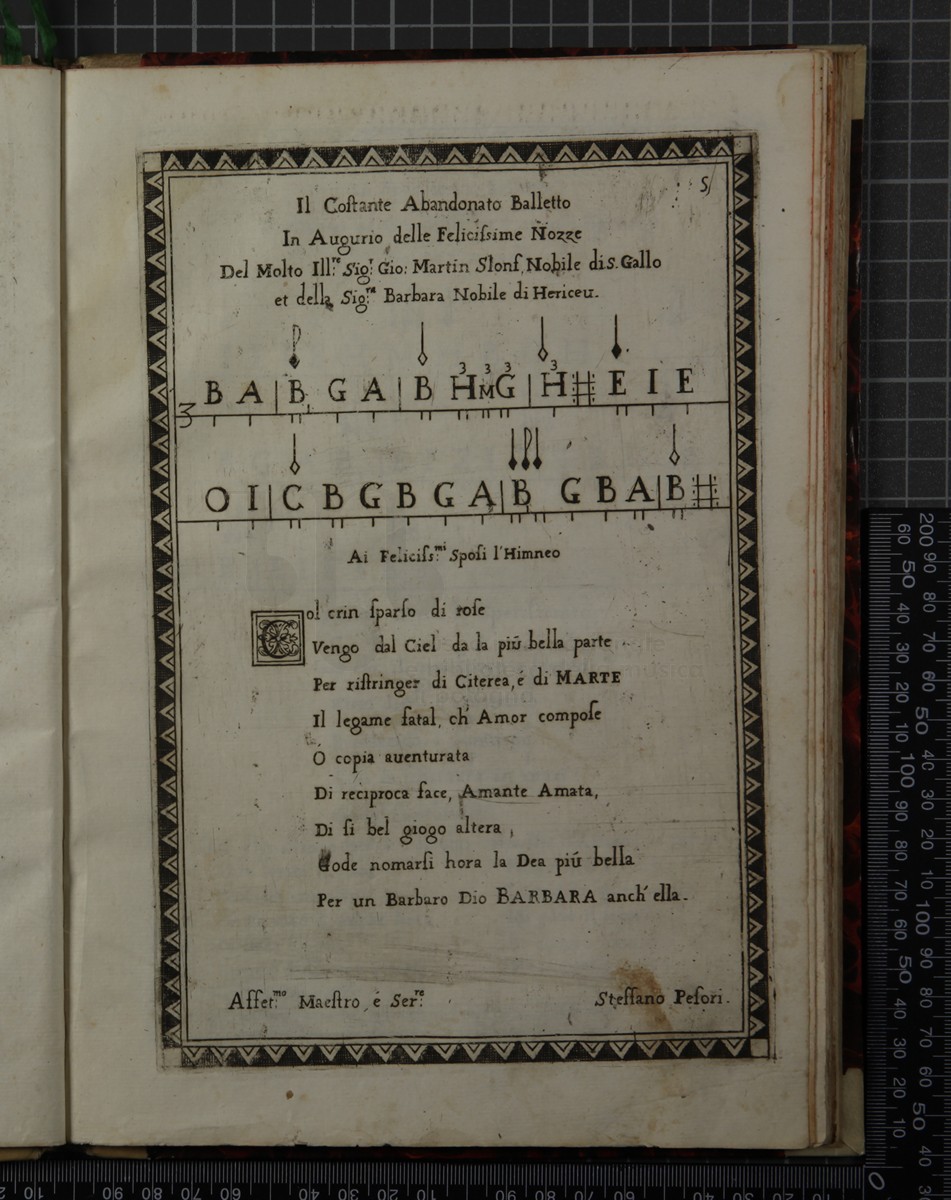 5/
Il Costante Abandonato Balletto
In Augurio delle Felicissime Nozze
Del Molto Ill.re Sig.r Gio: Martin Slonf, Nobile di S. Gallo
et della Sig.ra Barbara Nobile di Hericeu.
3 3 3 3
3 B A | B G A | B H M G | H # E I E
O I | C B G B G A | B G B A | B #
Ai Feliciss.mi Sposi l'Himneo
Col crin sparso di rose
Vengo dal Ciel da la piú bella parte
Per ristringer di Citerea, é di MARTE
Il legame fatal, ch' Amor compose
O copia auenturata
Di reciproca face, Amante Amata,
Di si bel giogo altera,
Gode nomarsi hora la Dea piú bella
Per un Barbaro Dio BARBARA anch' ella.
Affet.mo Maestro, é Ser.re Steffano Pesori.